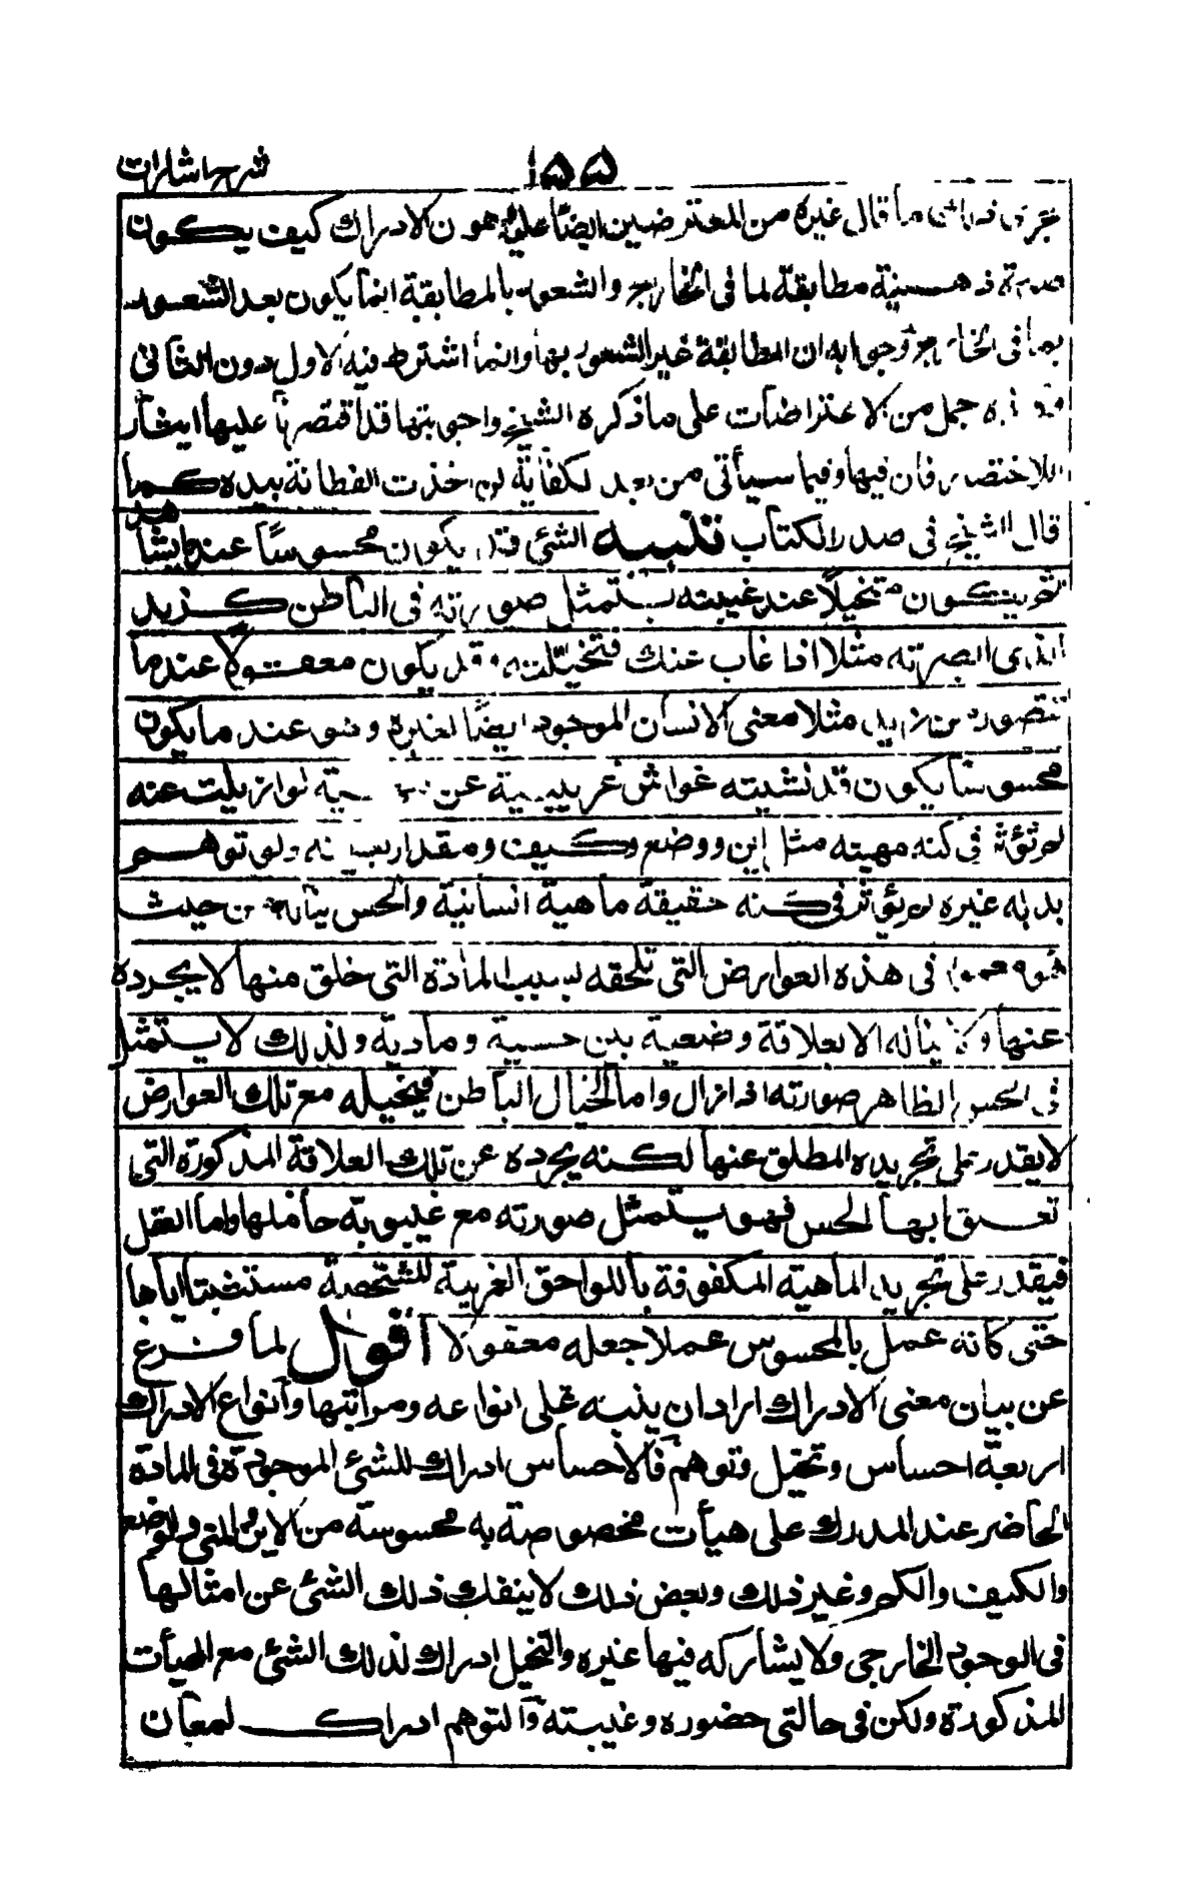 شرح اشارات ١٥٥
ما قال غيره من المعترضين ايضا عليه هو ن الادراك كيف يكون
ذهنية مطابقة لما فى الخارج والشعور بالمطابقة انما يكون بعد الشعور
بما فى الخارج وجوابه ان المطابقة غير الشعور بها وانما اشترط فيه الاول دون الثانى
جمل من الاعتراضات على ما ذكره الشيخ واجوبتها قد اقتصرنا عليها ايثارا
للاختصار فان فيها وفيما سيأتى من بعد لكفاية لمن اخذت الفطانة بيده كما
قال الشيخ فى صدر الكتاب تنبيه الشئ قد يكون محسوسا عند ما يشاهد
ثم يكون متخيلا عند غيبته بتمثل صورته فى الباطن كزيد
الذى ابصرته مثلا اذا غاب عنك فتخيلته وقد يكون معقولا عندما
تتصور من زيد مثلا معنى الانسان الموجود ايضا لغيره وهو عند ما يكون
محسوسا يكون قد غشيته غواش غريبة عن لو ازيلت عنه
لم تؤثر فى كنه مهيته مثل اين ووضع وكيف ومقدار بعينه ولو توهم
بدله غيره لم يؤثر فى كنه حقيقة ماهية انسانية والحس يناله من حيث
هو فى هذه العوارض التى تلحقه بسبب المادة التى خلق منها لا يجرده
عنها ولا يناله الا بعلاقة وضعية بين حسية ومادية ولذلك لا يتمثل
فى الحس الظاهر صورته اذا زال واما الخيال الباطن فيخيله مع تلك العوارض
لا يقدر على تجريده المطلق عنها لكنه يجرده عن تلك العلاقة المذكورة التى
تعلق بها الحس فهو يتمثل صورته مع غيبوبة حاملها واما العقل
فيقدر على تجريد الماهية المكفوفة باللواحق الغريبة المشخصة مستثبتا اياها
حتى كانه عمل بالمحسوس عملا جعله معقولا أقول لما فرغ
عن بيان معنى الادراك اراد ان ينبه على انواعه ومراتبها وانواع الادراك
اربعة احساس وتخيل وتوهم فالاحساس ادراك للشئ الموجود فى المادة
الحاضر عند المدرك على هيأت مخصوصة به محسوسة من الاين والمتى والوضع
والكيف والكم وغير ذلك وبعض ذلك لا ينفك ذلك الشئ عن امثالها
فى الوجود الخارجى ولا يشاركه فيها غيره والتخيل ادراك لذلك الشئ مع الهيأت
المذكورة ولكن فى حالتى حضوره وغيبته والتوهم ادراك لمعان